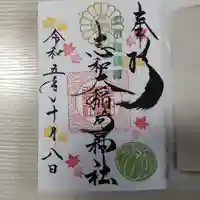 奉拝
志和稲荷神社
令和五年十月八日